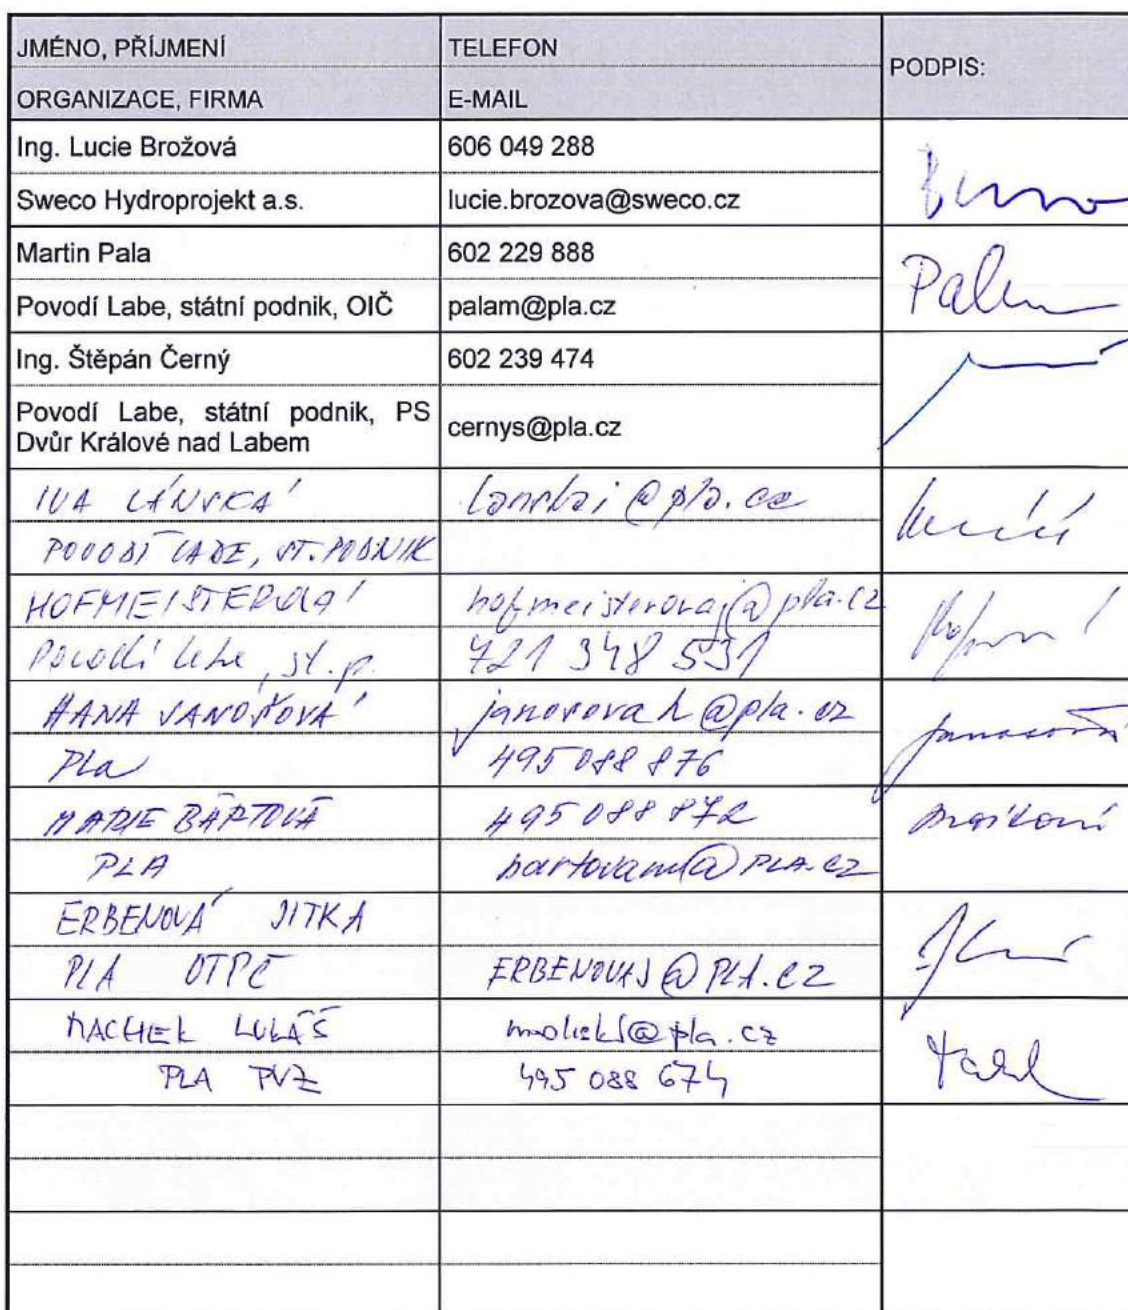 JMÉNO, PŘÍJMENÍ TELEFON PODPIS:
ORGANIZACE, FIRMA E-MAIL
Ing. Lucie Brožová 606 049 288
Sweco Hydroprojekt a.s. lucie.brozova@sweco.cz
Martin Pala 602 229 888
Povodí Labe, státní podnik, OIČ palam@pla.cz
Ing. Štěpán Černý 602 239 474
Povodí Labe, státní podnik, PS
Dvůr Králové nad Labem cernys@pla.cz
IVA LÁNSKÁ lanskai@pla.cz
POVODÍ LABE, ST. PODNIK
HOFMEISTEROVÁ hofmeisterovaj@pla.cz
Povodí Labe, st. p. 721 348 531
HANA JANOŠOVÁ janosovah@pla.cz
Pla 495 088 876
MARIE BÁRTOVÁ 495 088 872
PLA bartovam@PLA.CZ
ERBENOVÁ JITKA
PLA OTPČ ERBENOVAJ@PLA.CZ
MACHEK LUKÁŠ machekl@pla.cz
PLA PVZ 495 088 674